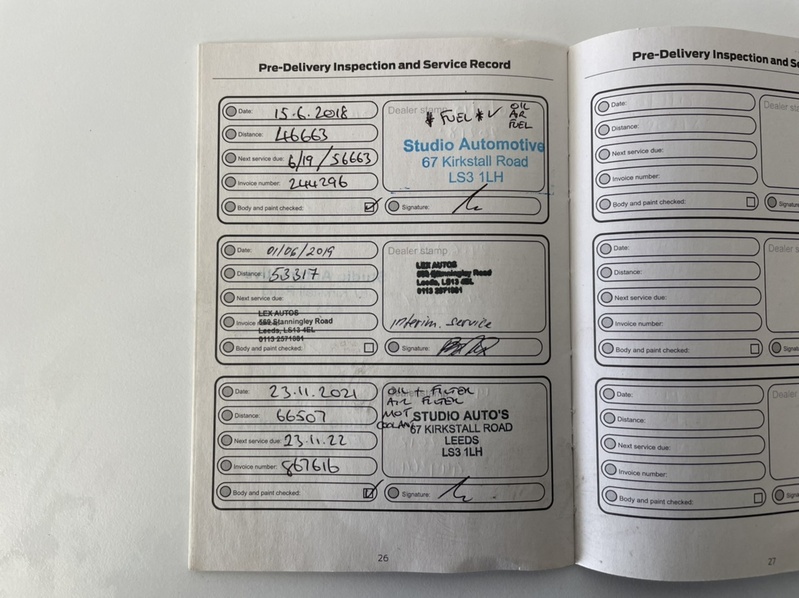 Pre-Delivery Inspection and Service Record
Date: 15.6.2018
Distance: 46663
Next service due: 6/19/56663
Invoice number: 244296
Body and paint checked:
Dealer stamp
* FUEL *
OIL
AIR
FUEL
Studio Automotive
67 Kirkstall Road
LS3 1LH
Signature:
Date: 01/06/2019
Distance: 53317
Next service due:
Invoice
LEX AUTOS
Stanningley Road
Leeds, LS13 4EL
0113 2571081
Body and paint checked:
Dealer stamp
LEX AUTOS
Stanningley Road
Leeds, LS13 4EL
0113 2571081
interim. service
Signature:
Date: 23.11.2021
Distance: 66507
Next service due: 23.11.22
Invoice number: 867616
Body and paint checked:
OIL + FILTER
AIR FILTER
MOT
COOLANT
STUDIO AUTO'S
67 KIRKSTALL ROAD
LEEDS
LS3 1LH
Signature:
26
Pre-Delivery Inspection and
Date:
Distance:
Next service due:
Invoice number:
Body and paint checked:
Dealer
Date:
Distance:
Next service due:
Invoice number:
Body and paint checked:
Dealer
Date:
Distance:
Next service due:
Invoice number:
Body and paint checked:
27